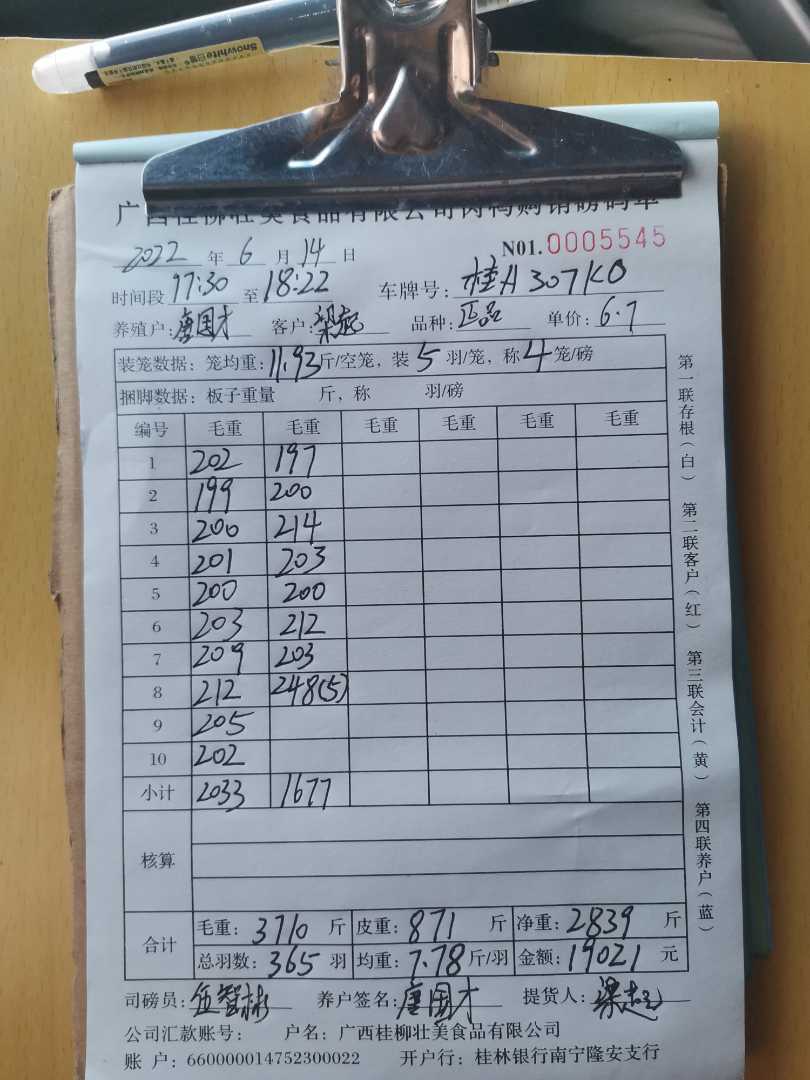 Snowhite白雪
广西桂柳壮美食品有限公司肉鸭购销磅码单
2022 年 6 月 14 日 N01.0005545
时间段 17:30 至 18:22 车牌号: 桂A307K0
养殖户: 唐国才 客户: 梁超 品种: 正品 单价: 6.7
装笼数据: 笼均重: 11.93斤/空笼, 装 5 羽/笼, 称 4 笼/磅
捆脚数据: 板子重量 斤, 称 羽/磅
编号 毛重 毛重 毛重 毛重 毛重 毛重
1 202 197
2 199 200
3 200 214
4 201 203
5 200 200
6 203 212
7 209 203
8 212 248(5)
9 205
10 202
小计 2033 1677
核算
合计 毛重: 3710 斤 皮重: 871 斤 净重: 2839 斤
总羽数: 365 羽 均重: 7.78 斤/羽 金额: 19021 元
司磅员: 伍智彬 养户签名: 唐国才 提货人: 梁超
公司汇款账号: 户名: 广西桂柳壮美食品有限公司
账 户: 660000014752300022 开户行: 桂林银行南宁隆安支行
第一联存根(白) 第二联客户(红) 第三联会计(黄) 第四联养户(蓝)